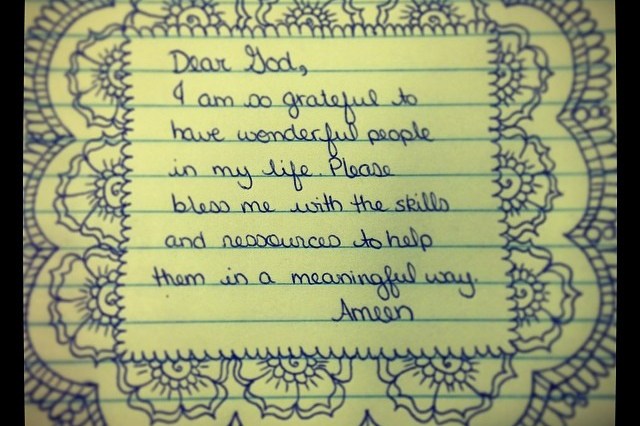 Dear God,
I am so grateful to
have wonderful people
in my life. Please
bless me with the skills
and ressources to help
them in a meaningful way.
Ameen